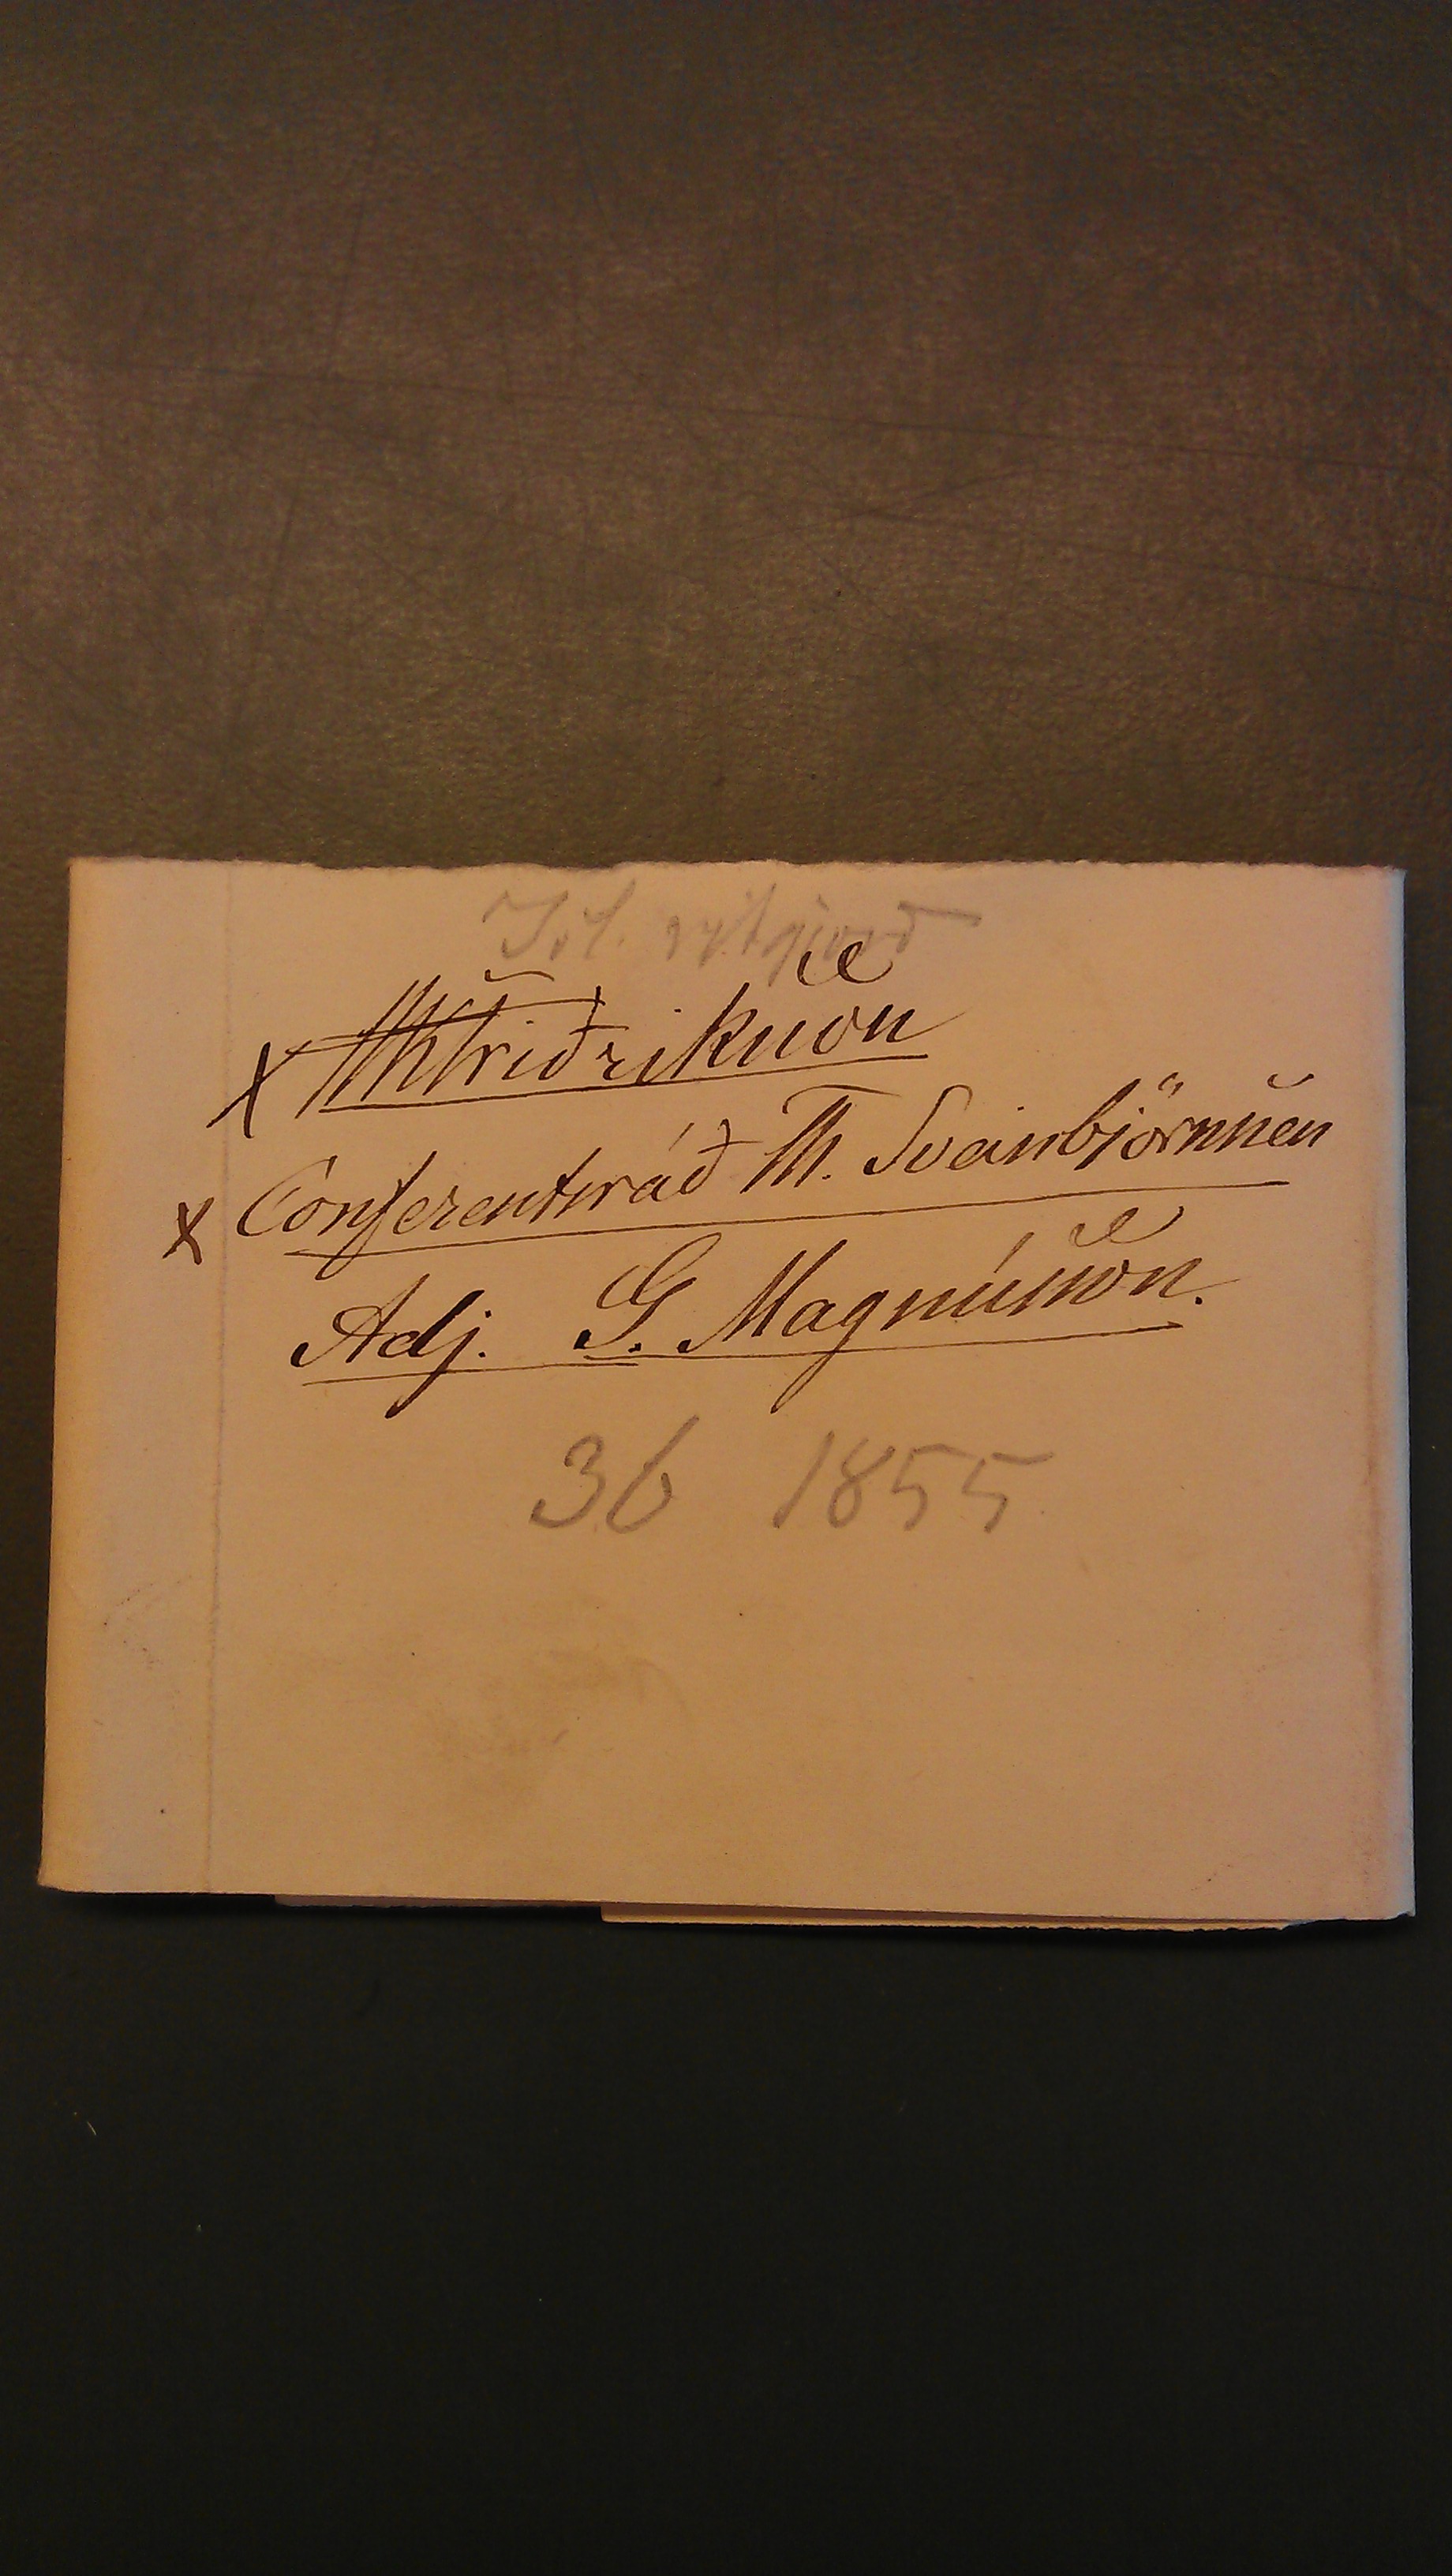 Ísl. ritgjörð
x HKFriðriksson
x Conferentsráð Th. Sveinbjörnssen
Adj. G. Magnússon.
36 1855